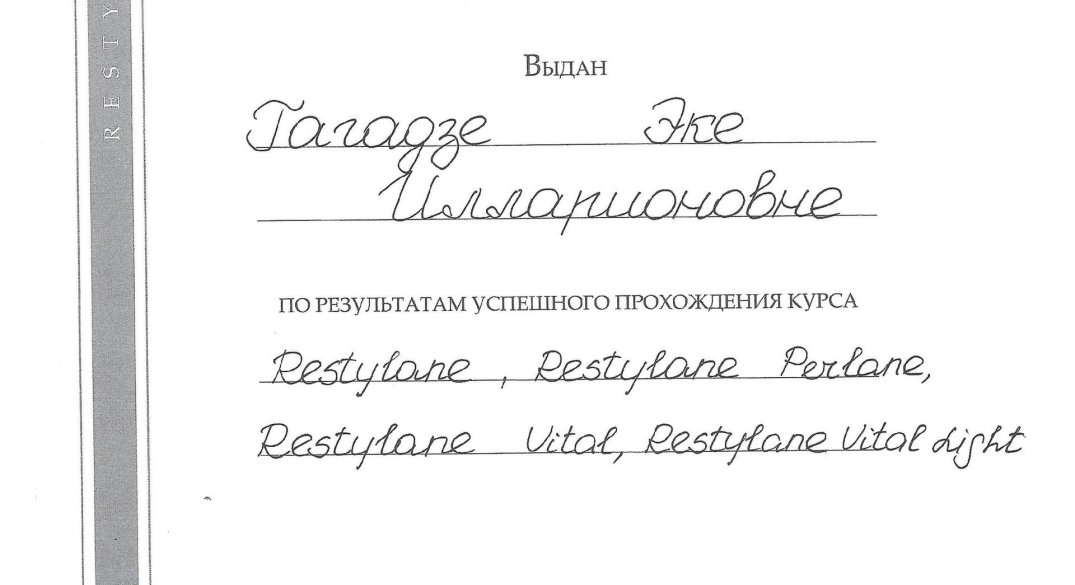 RESTY
Выдан
Гагадзе Эке
Илларионовне
по результатам успешного прохождения курса
Restylane, Restylane Perlane,
Restylane Vital, Restylane Vital Light